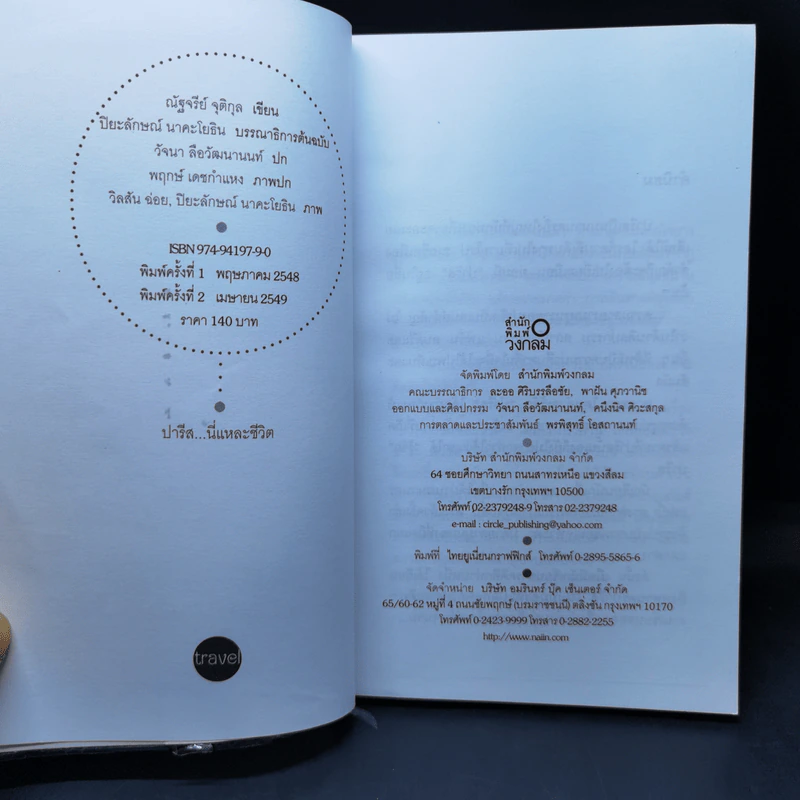 ณัฐจรีย์ จุติกุล เขียน
ปิยะลักษณ์ นาคะโยธิน บรรณาธิการต้นฉบับ
วัจนา ลือวัฒนานนท์ ปก
พฤกษ์ เดชกำแหง ภาพปก
วิลสัน ฉ่อย, ปิยะลักษณ์ นาคะโยธิน ภาพ
ISBN 974-94197-9-0
พิมพ์ครั้งที่ 1 พฤษภาคม 2548
พิมพ์ครั้งที่ 2 เมษายน 2549
ราคา 140 บาท
ปารีส...นี่แหละชีวิต
travel
สำนัก
พิมพ์
วงกลม
จัดพิมพ์โดย สำนักพิมพ์วงกลม
คณะบรรณาธิการ ละออ ศิริบรรลือชัย, พาฝัน ศุภวานิช
ออกแบบและศิลปกรรม วัจนา ลือวัฒนานนท์, คนึงนิจ ศิวะสกุล
การตลาดและประชาสัมพันธ์ พรพิสุทธิ์ โอสถานนท์
บริษัท สำนักพิมพ์วงกลม จำกัด
64 ซอยศึกษาวิทยา ถนนสาทรเหนือ แขวงสีลม
เขตบางรัก กรุงเทพฯ 10500
โทรศัพท์ 02-2379248-9 โทรสาร 02-2379248
e-mail : circle_publishing@yahoo.com
พิมพ์ที่ ไทยยูเนี่ยนกราฟฟิกส์ โทรศัพท์ 0-2895-5865-6
จัดจำหน่าย บริษัท อมรินทร์ บุ๊ค เซ็นเตอร์ จำกัด
65/60-62 หมู่ที่ 4 ถนนชัยพฤกษ์ (บรมราชชนนี) ตลิ่งชัน กรุงเทพฯ 10170
โทรศัพท์ 0-2423-9999 โทรสาร 0-2882-2255
http://www.naiin.com